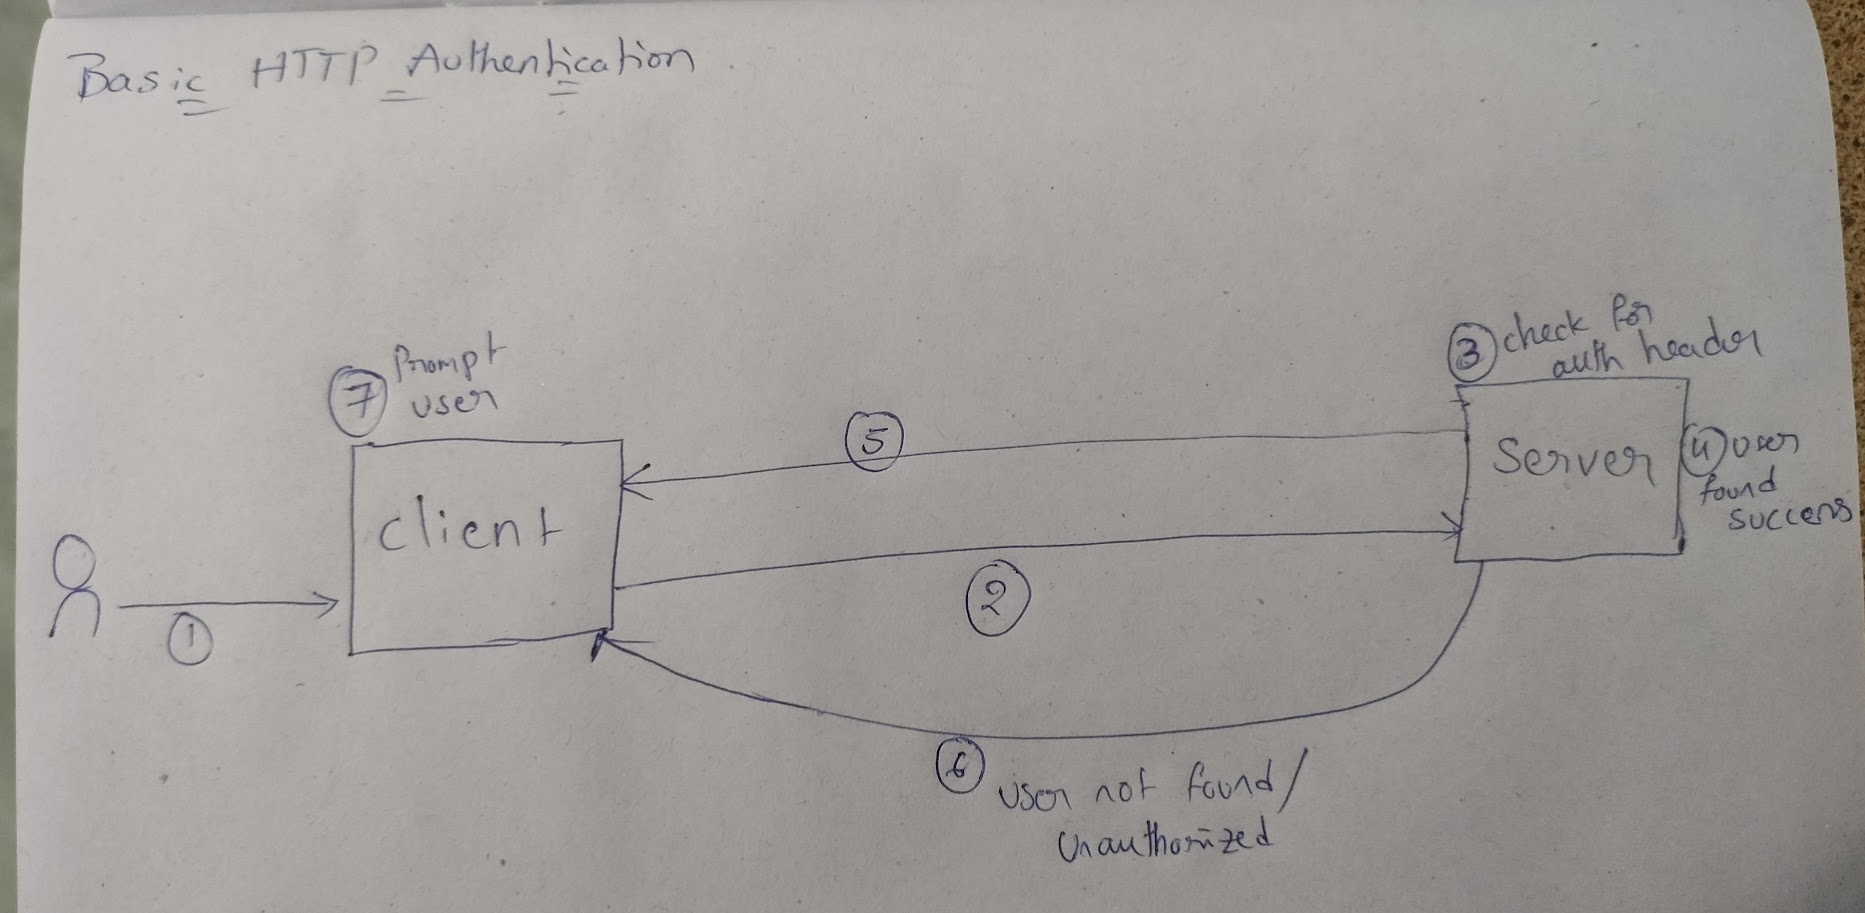 Basic HTTP Authentication
7 Prompt
user
client
1
5
2
3 check for
auth header
Server
4 user
found
success
6 user not found/
Unauthorized